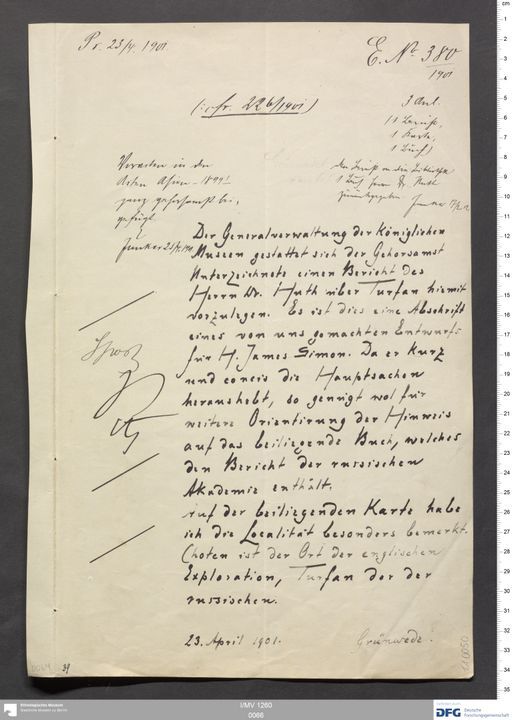 Pr. 23/4. 1901.
E. No 380/1901
(: cfr. 226/1901)
3 Anl.
(1 Bericht,
1 Karte,
1 Buch)
Vorakten in den
Akten Asien
ganz gehorsamst bei-
gefügt.
Junker 23/4. 1901.
Der Generalverwaltung der Königlichen
Museen gestattet sich der Gehorsamst
Unterzeichnete einen Bericht des
Herrn Dr. Huth über Turfan hiemit
vorzulegen. Es ist dies eine Abschrift
eines von uns gemachten Entwurfs
für H. James Simon. Da er kurz
und concis die Hauptsachen
heraushebt, so genügt wol für
weitere Orientirung der Hinweis
auf das beiliegende Buch, welches
den Bericht der russischen
Akademie enthält.
Auf der beiliegenden Karte habe
ich die Localität besonders bemerkt.
Choten ist der Ort der englischen
Exploration, Turfan der der
russischen.
23. April 1901. Grünwedel.
I/MV 1260
0066
Ethnologisches Museum
Staatliche Museen zu Berlin
DFG Deutsche
Forschungsgemeinschaft